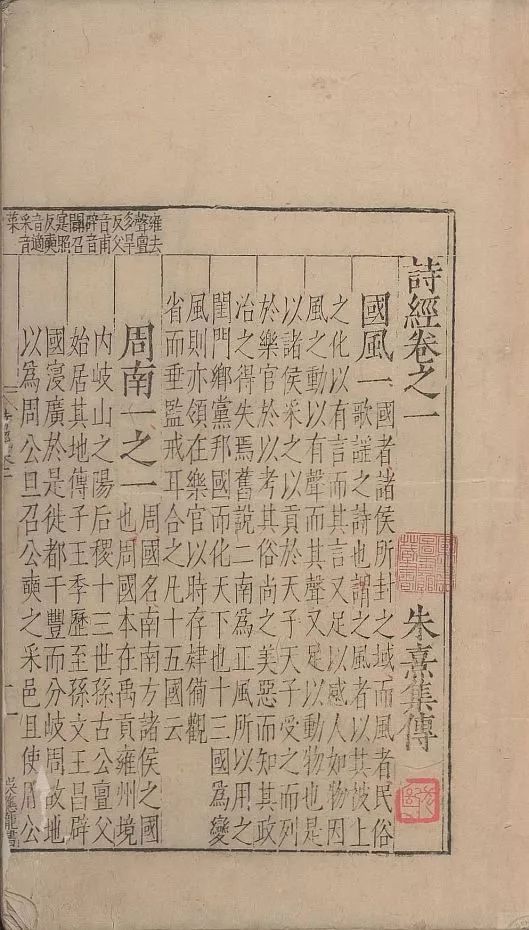 雍去
聲亶
多旱
反父
音甫
辟音
闢召
寔照
反奭
音適
采音
菜
詩經卷之一　朱熹集傳
國風一　國者諸侯所封之域而風者民俗
歌謠之詩也謂之風者以其被上
之化以有言而其言又足以感人如物因
風之動以有聲而其聲又足以動物也是
以諸侯采之以貢於天子天子受之而列
於樂官於以考其俗尚之美惡而知其政
治之得失焉舊說二南爲正風所以用之
閨門鄉黨邦國而化天下也十三國爲變
風則亦領在樂官以時存肄備觀
省而垂監戒耳合之凡十五國云
周南一之一　周國名南南方諸侯之國
也周國本在禹貢雍州境
內岐山之陽后稷十三世孫古公亶父
始居其地傳子王季歷至孫文王昌辟
國寖廣於是徙都于豐而分岐周故地
以爲周公旦召公奭之采邑且使周公